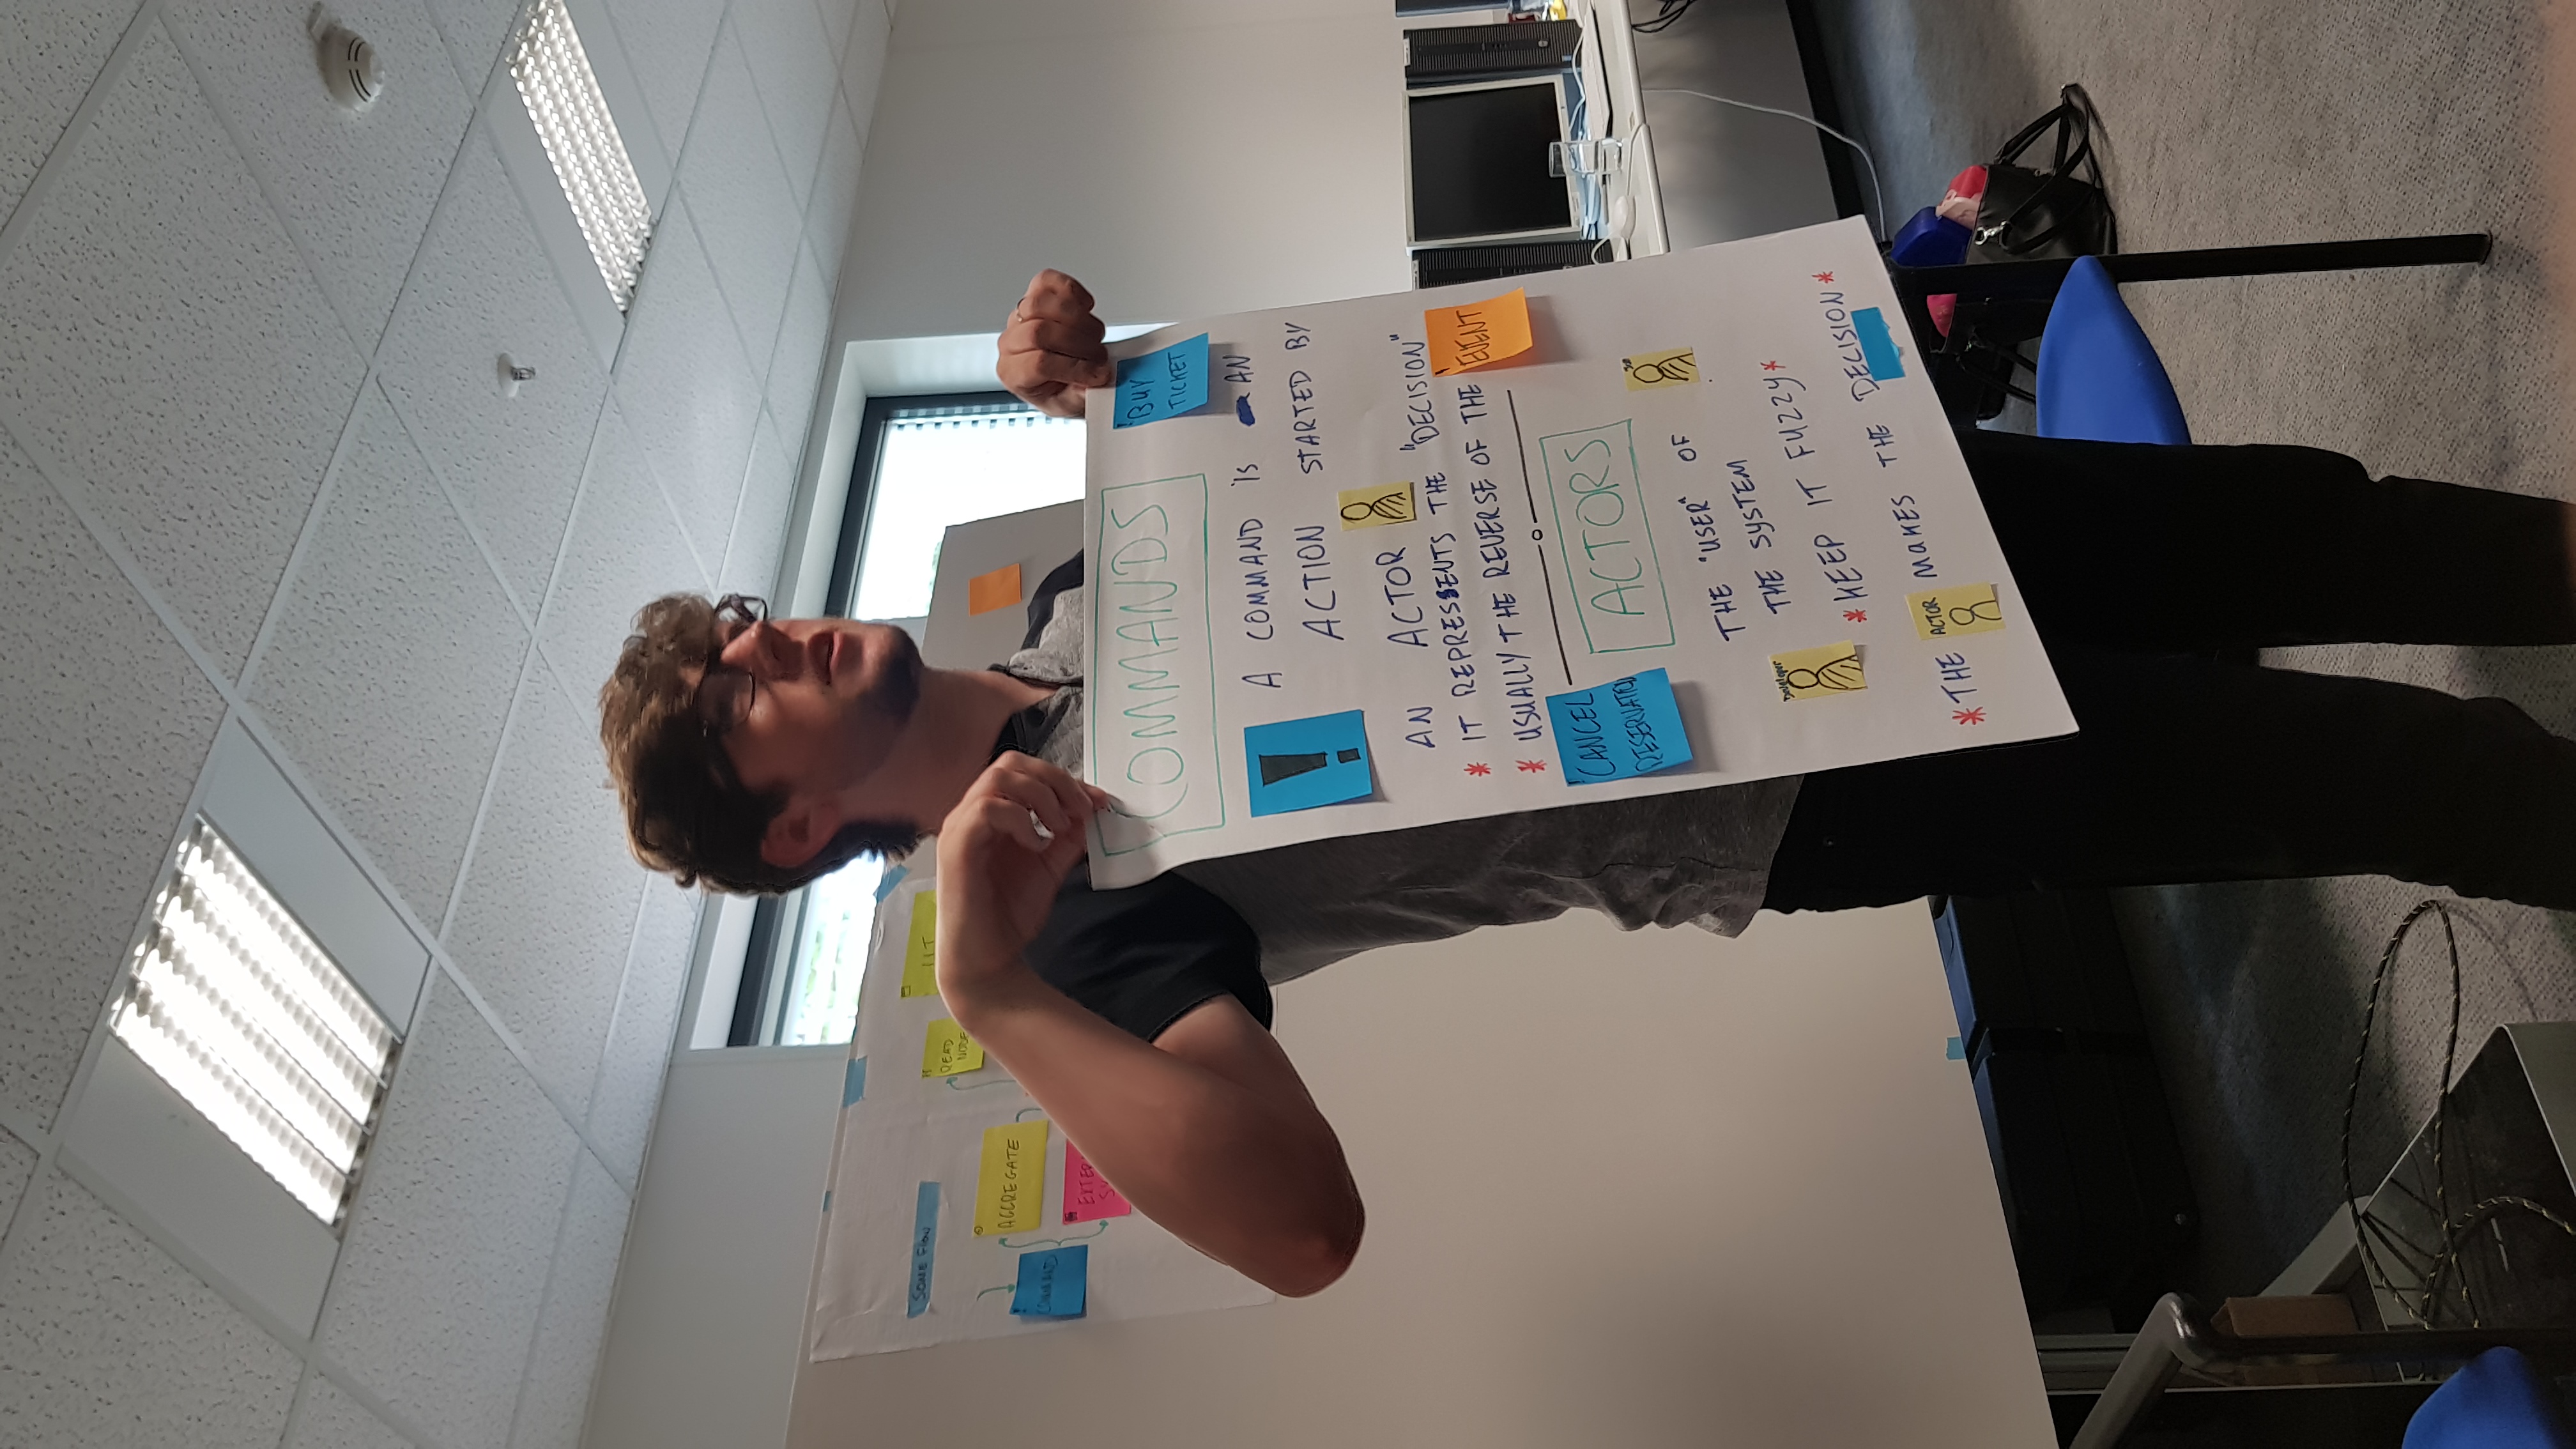 SOME FLOW
COMMAND
AGGREGATE
READ
UI
COMMANDS
BUY
TICKET
!
A COMMAND IS AN
ACTION STARTED BY
AN ACTOR
* IT REPRESENTS THE "DECISION"
* USUALLY THE REVERSE OF THE EVENT
CANCEL
RESERVATION
ACTORS
THE "USER" OF
THE SYSTEM
Developer
* KEEP IT FUZZY *
* THE ACTOR MAKES THE DECISION *